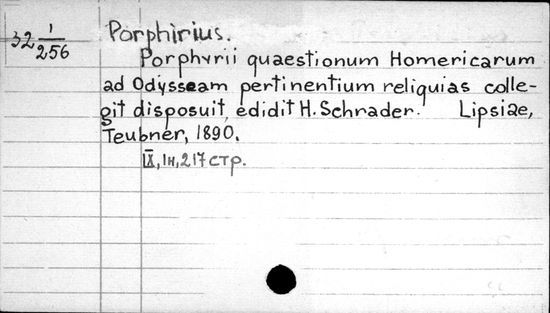 32 1/256
Porphirius.
Porphyrii quaestionum Homericarum
ad Odysseam pertinentium reliquias colle-
git disposuit edidit H. Schrader. Lipsiae,
Teubner, 1890.
IX, 1н, 217 стр.